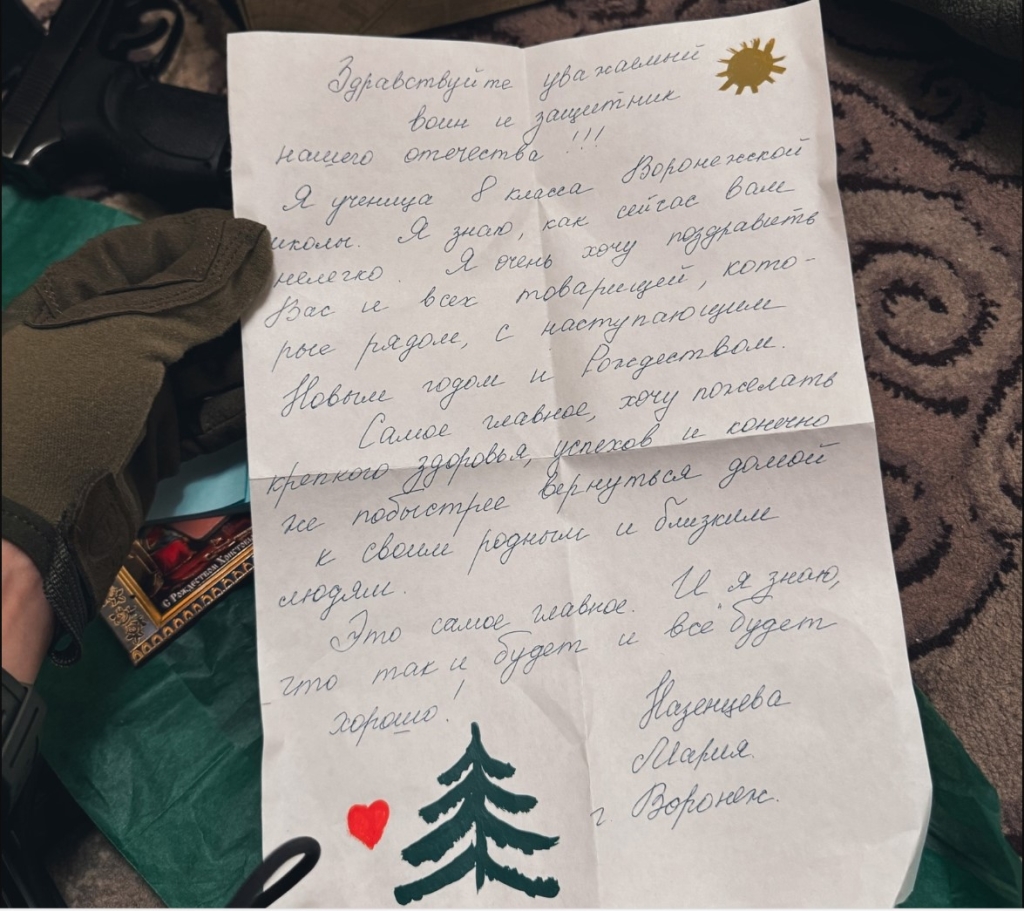 Здравствуйте уважаемый
воин и защитник
нашего отечества !!!
Я ученица 8 класса Воронежской
школы. Я знаю, как сейчас вам
нелегко. Я очень хочу поздравить
Вас и всех товарищей, кото-
рые рядом, с наступающим
Новым годом и Рождеством.
Самое главное, хочу пожелать
крепкого здоровья, успехов и конечно
же побыстрее вернуться домой
к своим родным и близким
людям.
Это самое главное. И я знаю,
что так и будет и всё будет
хорошо!
Назенцева
Мария.
г. Воронеж.
С Рождеством